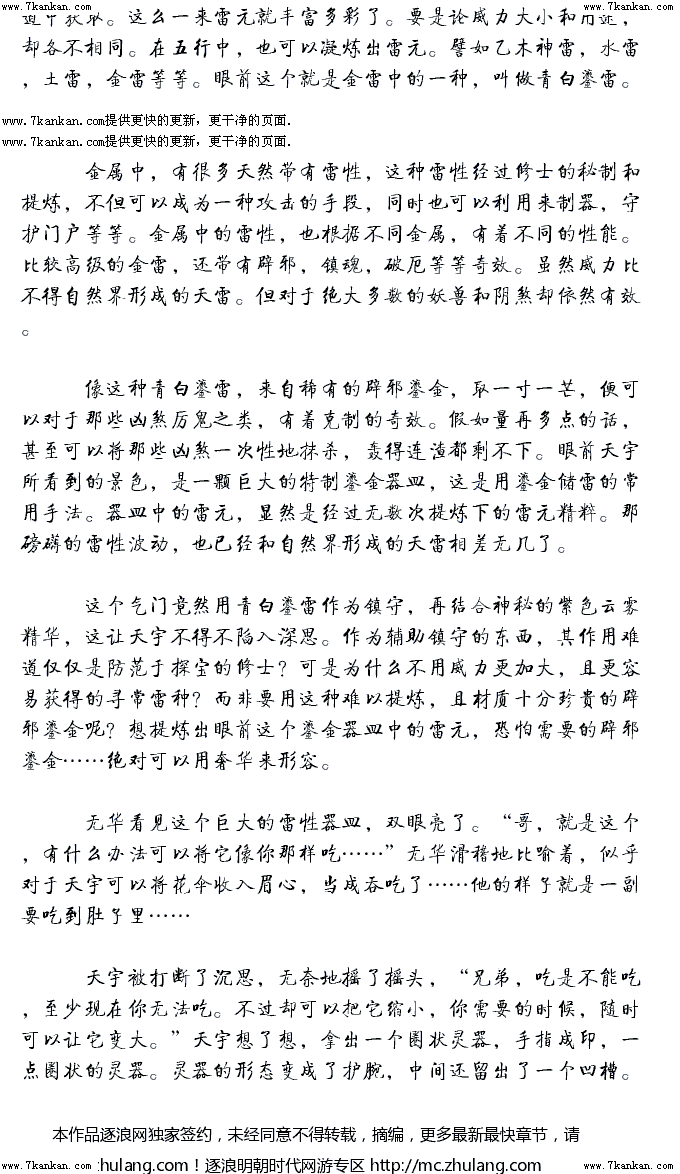 www.7kankan.com www.7kankan.com
道中获取。这么一来雷元就丰富多彩了。要是论威力大小和用途，
却各不相同。在五行中，也可以凝炼出雷元。譬如乙木神雷，水雷
，土雷，金雷等等。眼前这个就是金雷中的一种，叫做青白鎏雷。
www.7kankan.com提供更快的更新，更干净的页面.
www.7kankan.com提供更快的更新，更干净的页面.
金属中，有很多天然带有雷性，这种雷性经过修士的秘制和
提炼，不但可以成为一种攻击的手段，同时也可以利用来制器，守
护门户等等。金属中的雷性，也根据不同金属，有着不同的性能。
比较高级的金雷，还带有辟邪，镇魂，破厄等等奇效。虽然威力比
不得自然界形成的天雷。但对于绝大多数的妖兽和阴煞却依然有效
。
像这种青白鎏雷，来自稀有的辟邪鎏金，取一寸一芒，便可
以对于那些凶煞厉鬼之类，有着克制的奇效。假如量再多点的话，
甚至可以将那些凶煞一次性地抹杀，轰得连渣都剩不下。眼前天宇
所看到的景色，是一颗巨大的特制鎏金器皿，这是用鎏金储雷的常
用手法。器皿中的雷元，显然是经过无数次提炼下的雷元精粹。那
磅礴的雷性波动，也已经和自然界形成的天雷相差无几了。
这个气门竟然用青白鎏雷作为镇守，再结合神秘的紫色云雾
精华，这让天宇不得不陷入深思。作为辅助镇守的东西，其作用难
道仅仅是防范于探宝的修士？可是为什么不用威力更加大，且更容
易获得的寻常雷种？而非要用这种难以提炼，且材质十分珍贵的辟
邪鎏金呢？想提炼出眼前这个鎏金器皿中的雷元，恐怕需要的辟邪
鎏金……绝对可以用奢华来形容。
无华看见这个巨大的雷性器皿，双眼亮了。“哥，就是这个
，有什么办法可以将它像你那样吃……”无华滑稽地比喻着，似乎
对于天宇可以将花伞收入眉心，当成吞吃了……他的样子就是一副
要吃到肚子里……
天宇被打断了沉思，无奈地摇了摇头，“兄弟，吃是不能吃
，至少现在你无法吃。不过却可以把它缩小，你需要的时候，随时
可以让它变大。”天宇想了想，拿出一个圈状灵器，手指成印，一
点圈状的灵器。灵器的形态变成了护腕，中间还留出了一个凹槽。
本作品逐浪网独家签约，未经同意不得转载，摘编，更多最新最快章节，请
www.7kankan.com zhulang.com！逐浪明朝时代网游专区 http://mc.zhulang.com www.7kankan.com